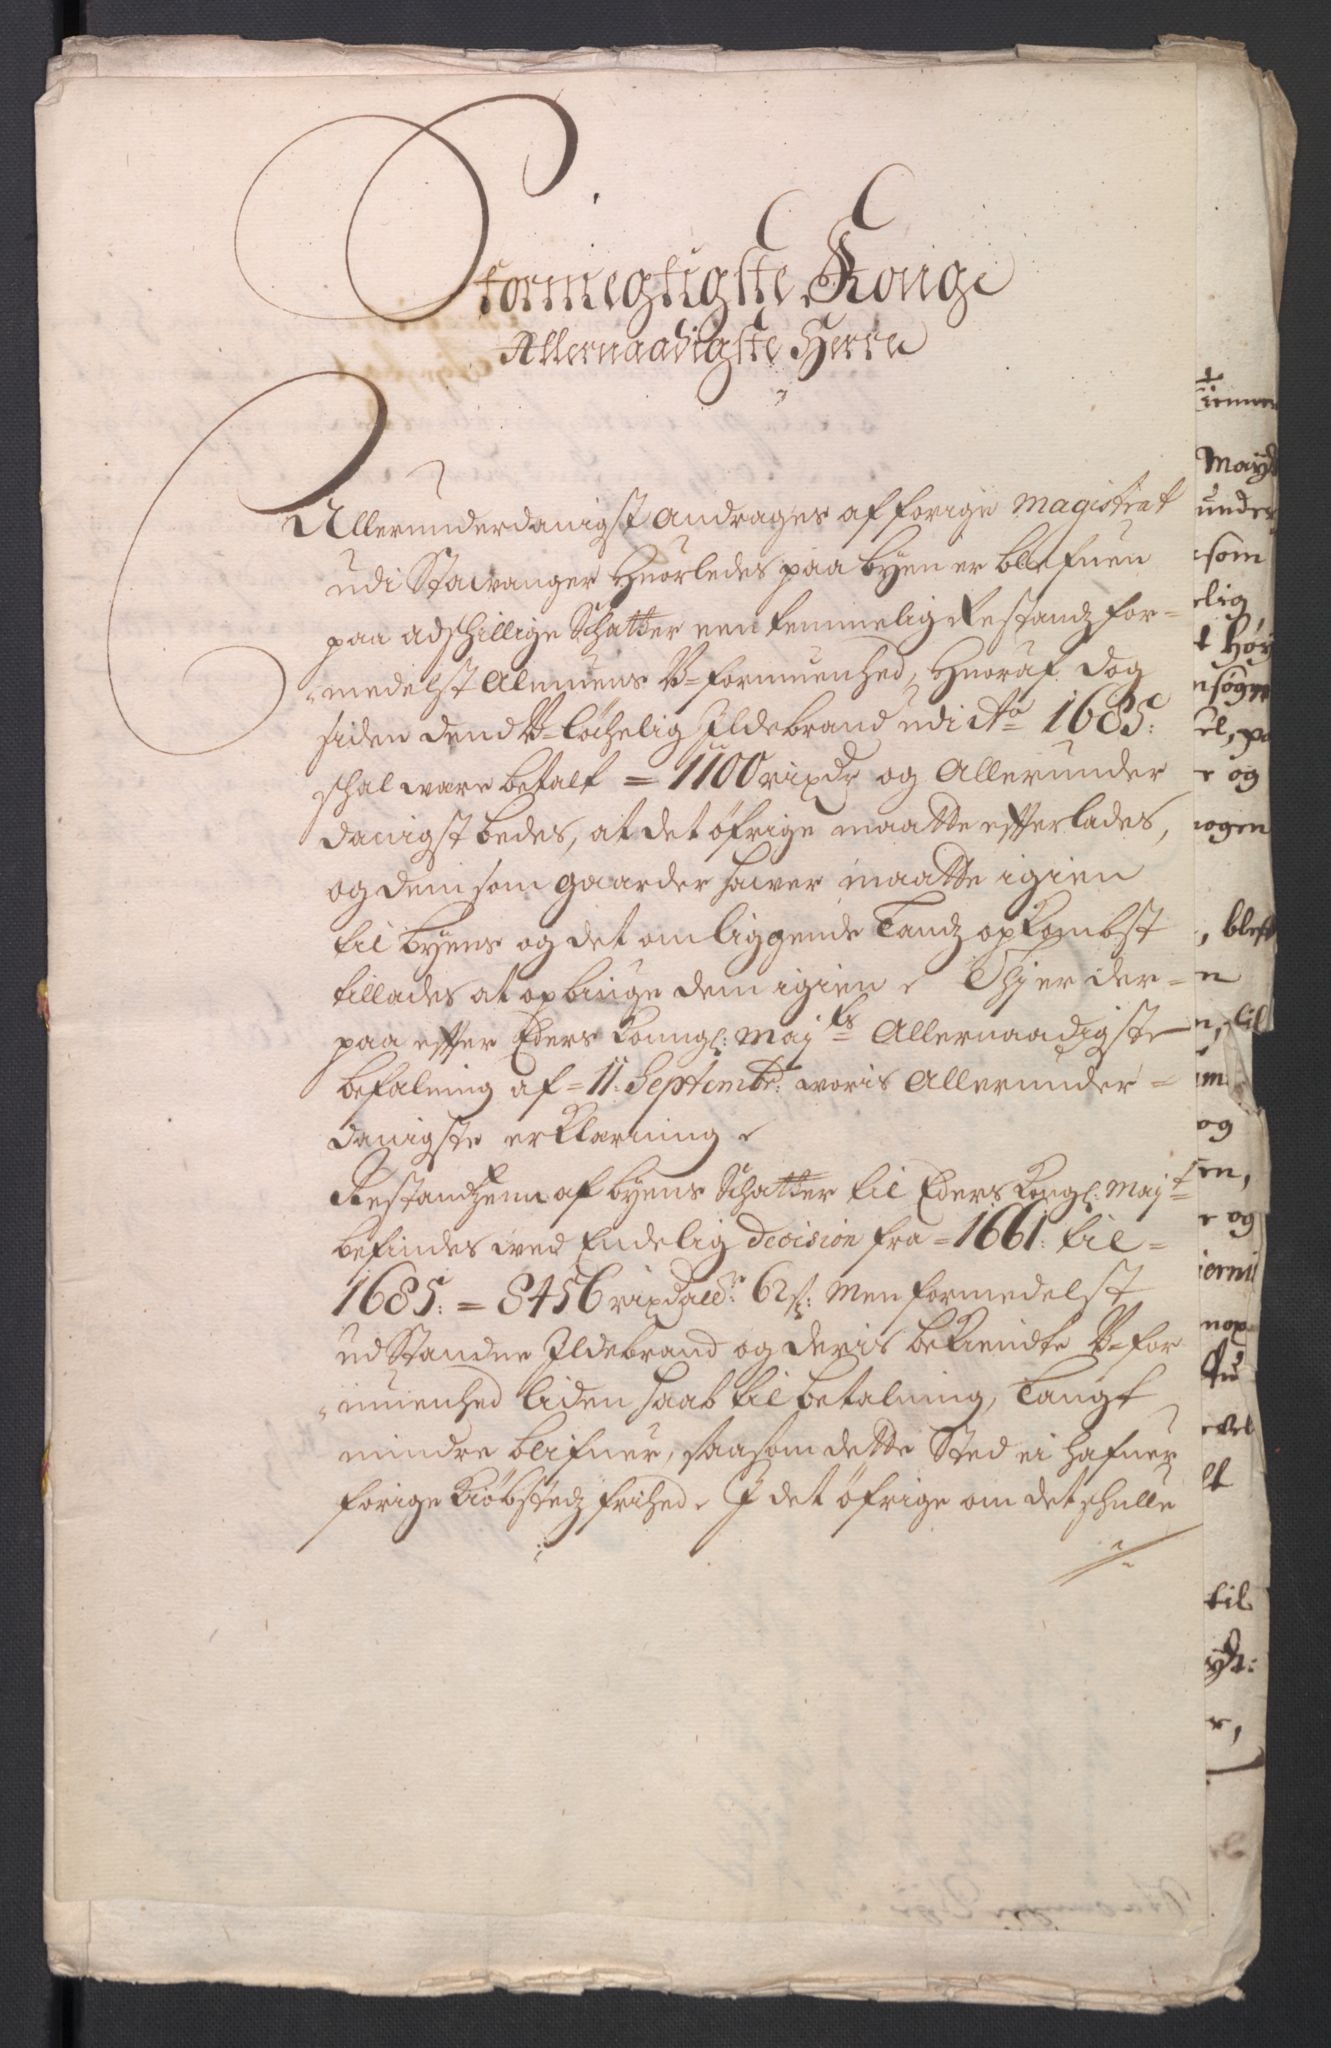 Stormegtigste Konge
Allernaadigste Herre
Allerunderdanigst andrages af forige Magistrat
udi Stavanger Hvorledes paa byen er blefuen
paa adschillige Schatter een temmelig Restandz for=
medelst Almuens U=formuenhed, Huoraf dog
siden dend U=löchelig Ildebrand udi Ao 1685:
schal were betalt = 1100 rixdr og Allerunder
danigst bedes, at det öfrige maatte efterlades,
og dem som gaarder hawer maatte igien
til byens og det omliggende Landz opkombst
tillades at opbiuge dem igien. Thj er der=
paa efter Eders Kongl: Maj.ts Allernaadigste
befalning af = 11: Septembr: woris Allerunder=
danigste erklæring.
Restandzen af byens Schatter til Eders Kongl: Majt
befindes wed Endelig Decision fra = 1661: til =
1685: = 8456 rixdaldr: 62 s: Men formedelst
udstandne Ildebrand og deris bekiendte U=for
muenhed liden haab til betalning, langt
mindre blifuer, saasom dette Sted ei hafuer
forige Kiöbstedz frihed. I det öfrige om det schulle
Mayt
under
som
elig
t Höy
el, pa
og
nogen
, blef
n
til
og
en,
og
til